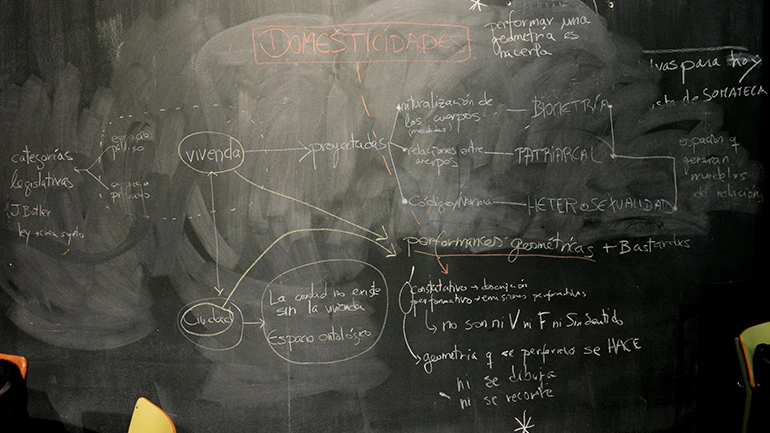 performar una
geometría es
hacerla
DOMESTICIDADES
para hoy
de SOMATECA
categorías
legislativas
J. Butler
espacio
público
espacio
privado
vivenda
proyectadas
naturalización de
los cuerpos
(medidas)
BIOMETRÍA
relaciones entre
cuerpos
PATRIARCAL
Código/Norma
HETEROSEXUALIDAD
espacios q
generan
modelos
de relación
performances geométrias + Bastardxs
Ciudad
La ciudad no existe
sin la vivienda
Espacio ontológico
constatativo → descripción
performativo → emisiones performativas
no son ni V ni F ni Sin sentido
geometría q se performa se HACE
ni se dibuja
ni se recorte